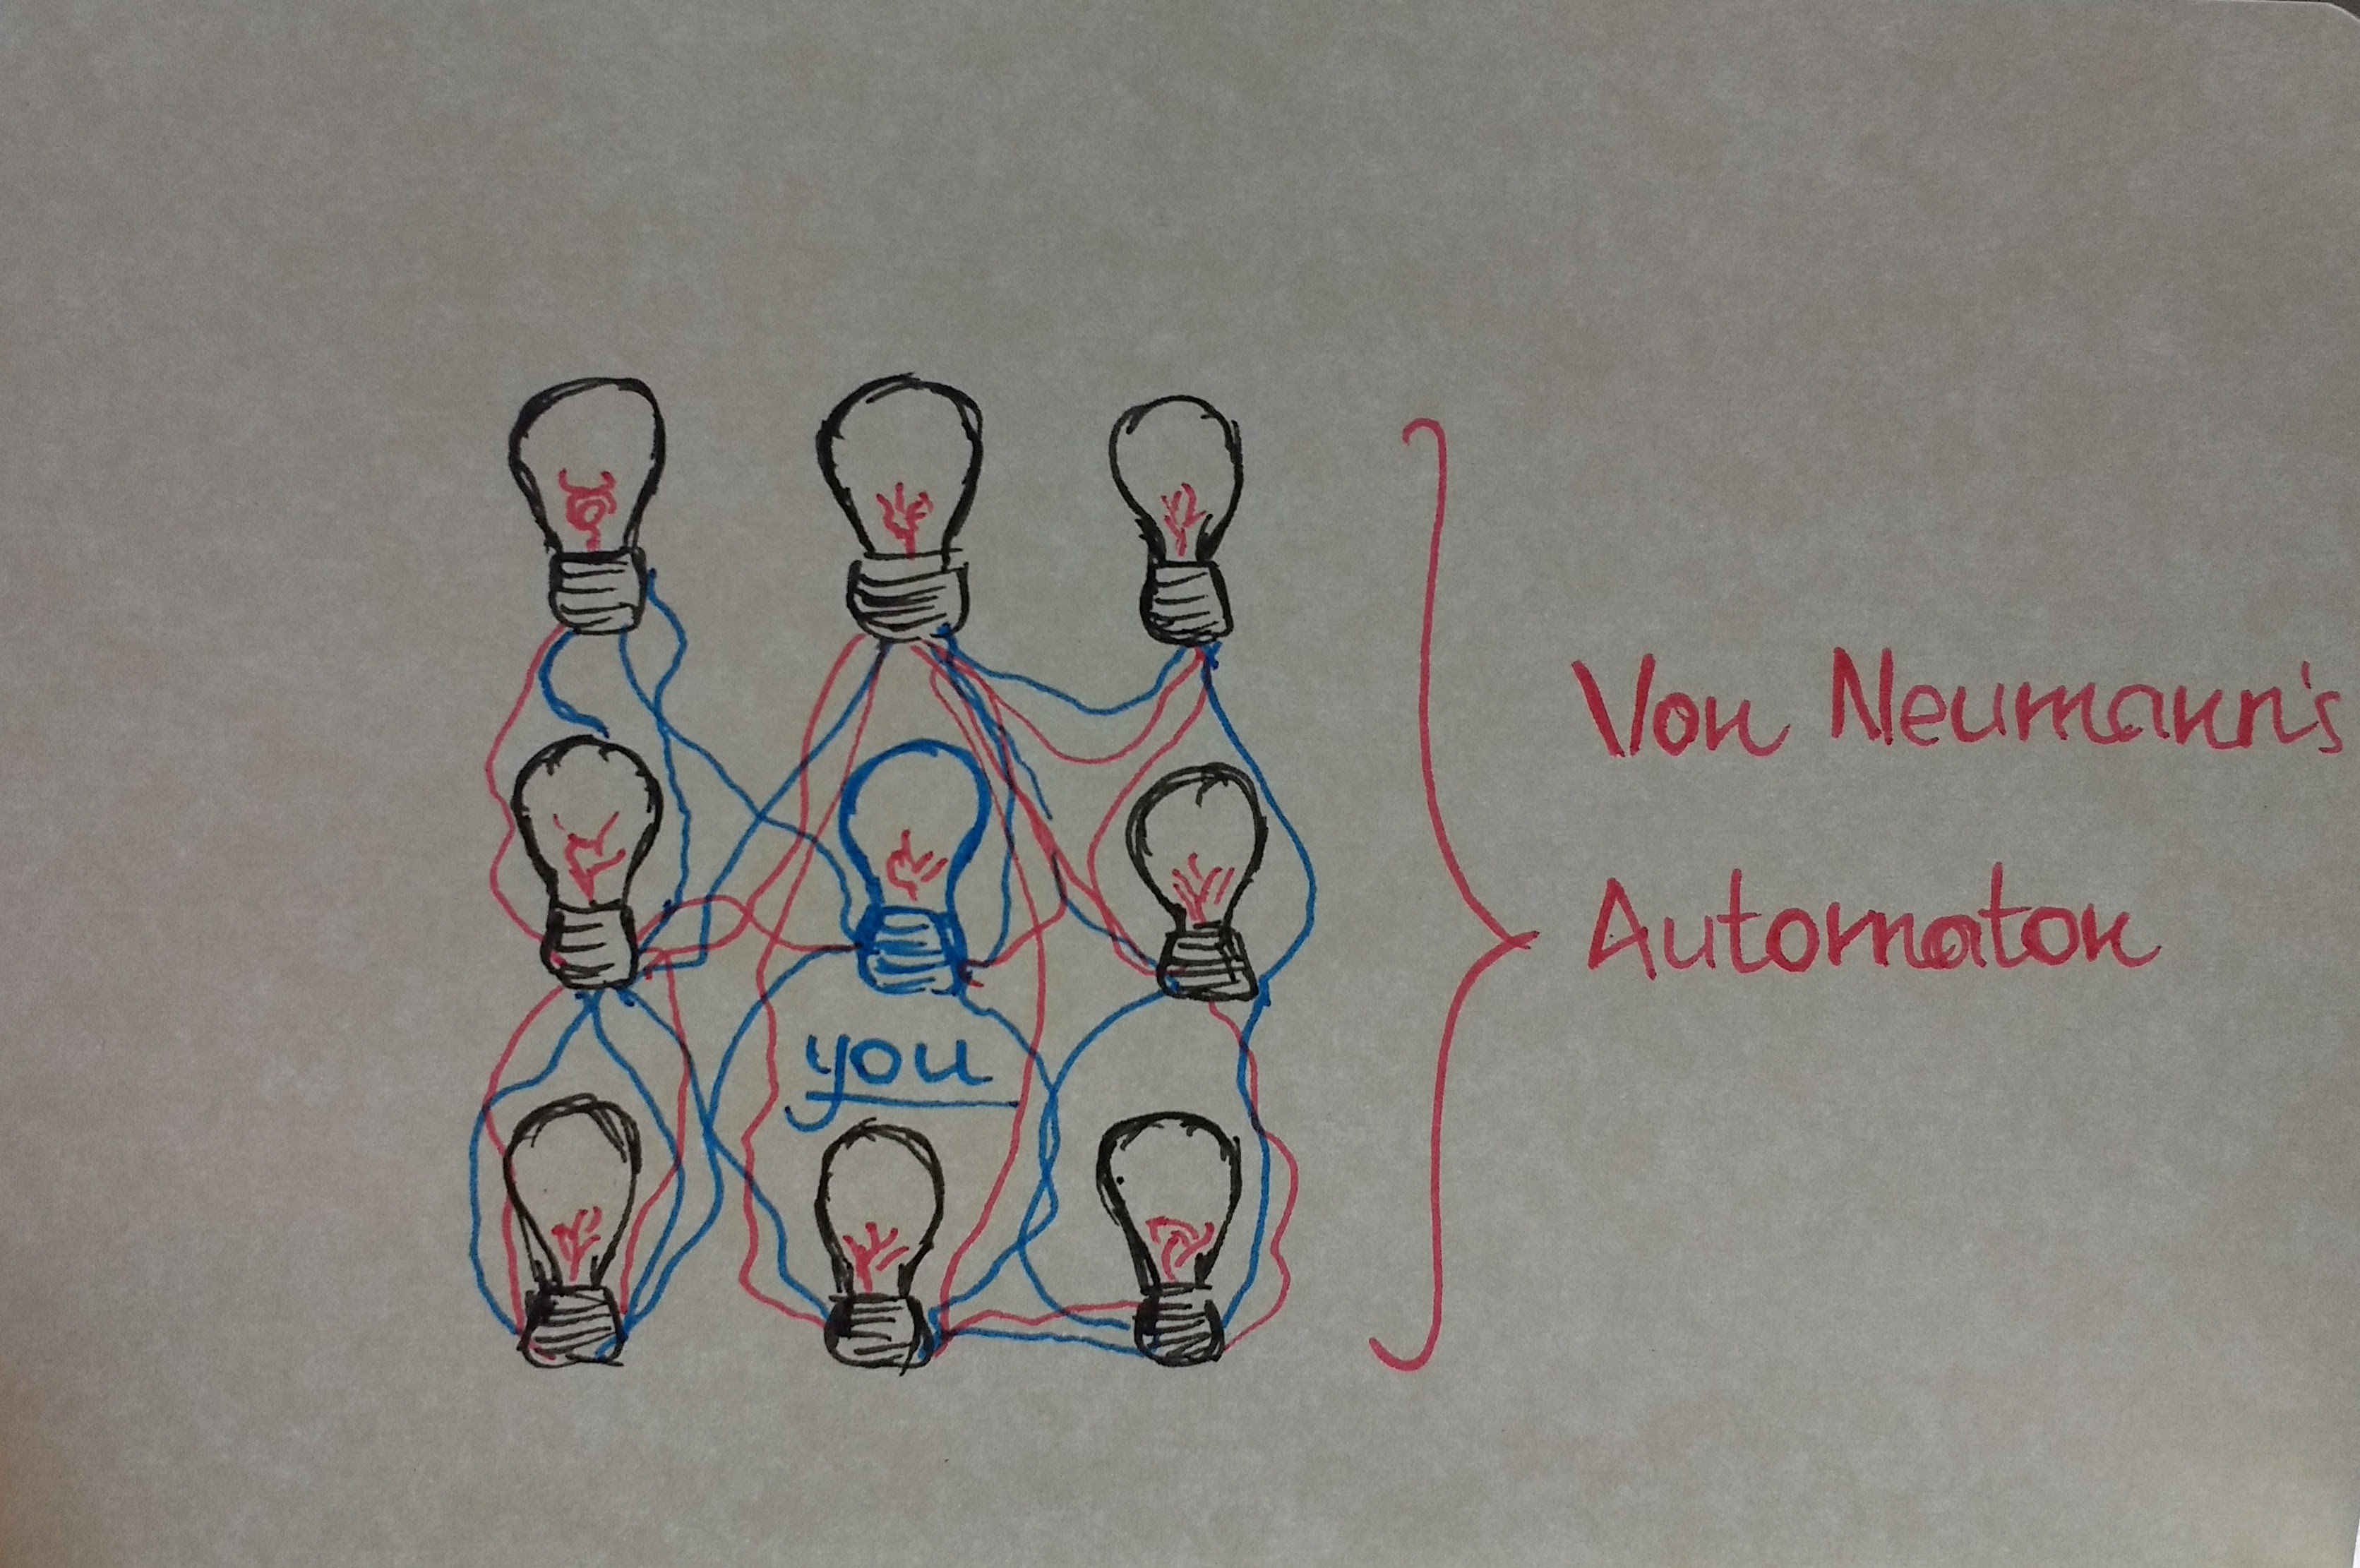 you
Von Neumann's
Automaton